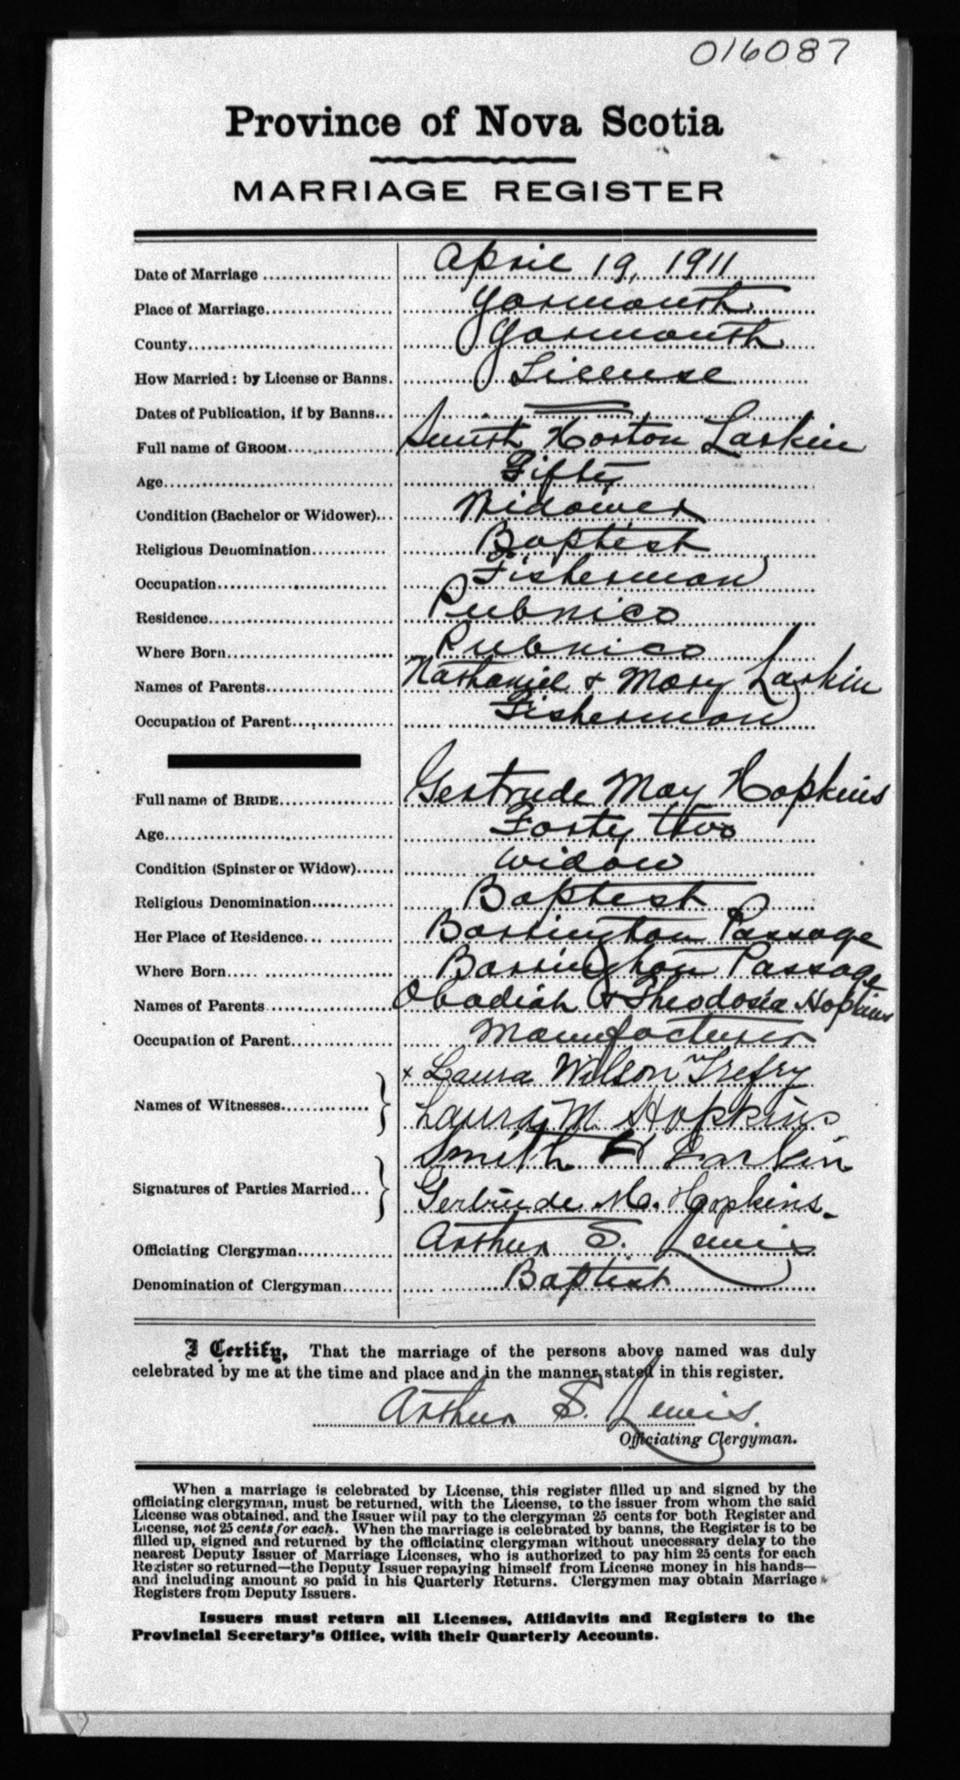 016087
Province of Nova Scotia
MARRIAGE REGISTER
Date of Marriage April 19, 1911
Place of Marriage Yarmouth
County Yarmouth
How Married: by License or Banns. License
Dates of Publication, if by Banns
Full name of GROOM Smith Horton Larkin
Age Fifty
Condition (Bachelor or Widower) Widower
Religious Denomination Baptist
Occupation Fisherman
Residence Pubnico
Where Born Pubnico
Names of Parents Nathaniel & Mary Larkin
Occupation of Parent Fisherman
Full name of BRIDE Gertrude May Hopkins
Age Forty two
Condition (Spinster or Widow) Widow
Religious Denomination Baptist
Her Place of Residence Barrington Passage
Where Born Barrington Passage
Names of Parents Obadiah & Theodosia Hopkins
Occupation of Parent Manufacturer
x Laura Wilson Trefry
Names of Witnesses Laura M. Hopkins
Smith H Larkin
Signatures of Parties Married Gertrude M. Hopkins.
Officiating Clergyman Arthur S. Lewis
Denomination of Clergyman Baptist
I Certify, That the marriage of the persons above named was duly
celebrated by me at the time and place and in the manner stated in this register.
Arthur S. Lewis.
Officiating Clergyman.
When a marriage is celebrated by License, this register filled up and signed by the
officiating clergyman, must be returned, with the License, to the issuer from whom the said
License was obtained, and the Issuer will pay to the clergyman 25 cents for both Register and
License, not 25 cents for each. When the marriage is celebrated by banns, the Register is to be
filled up, signed and returned by the officiating clergyman without unecessary delay to the
nearest Deputy Issuer of Marriage Licenses, who is authorized to pay him 25 cents for each
Register so returned—the Deputy Issuer repaying himself from License money in his hands—
and including amount so paid in his Quarterly Returns. Clergymen may obtain Marriage
Registers from Deputy Issuers.
Issuers must return all Licenses, Affidavits and Registers to the
Provincial Secretary's Office, with their Quarterly Accounts.